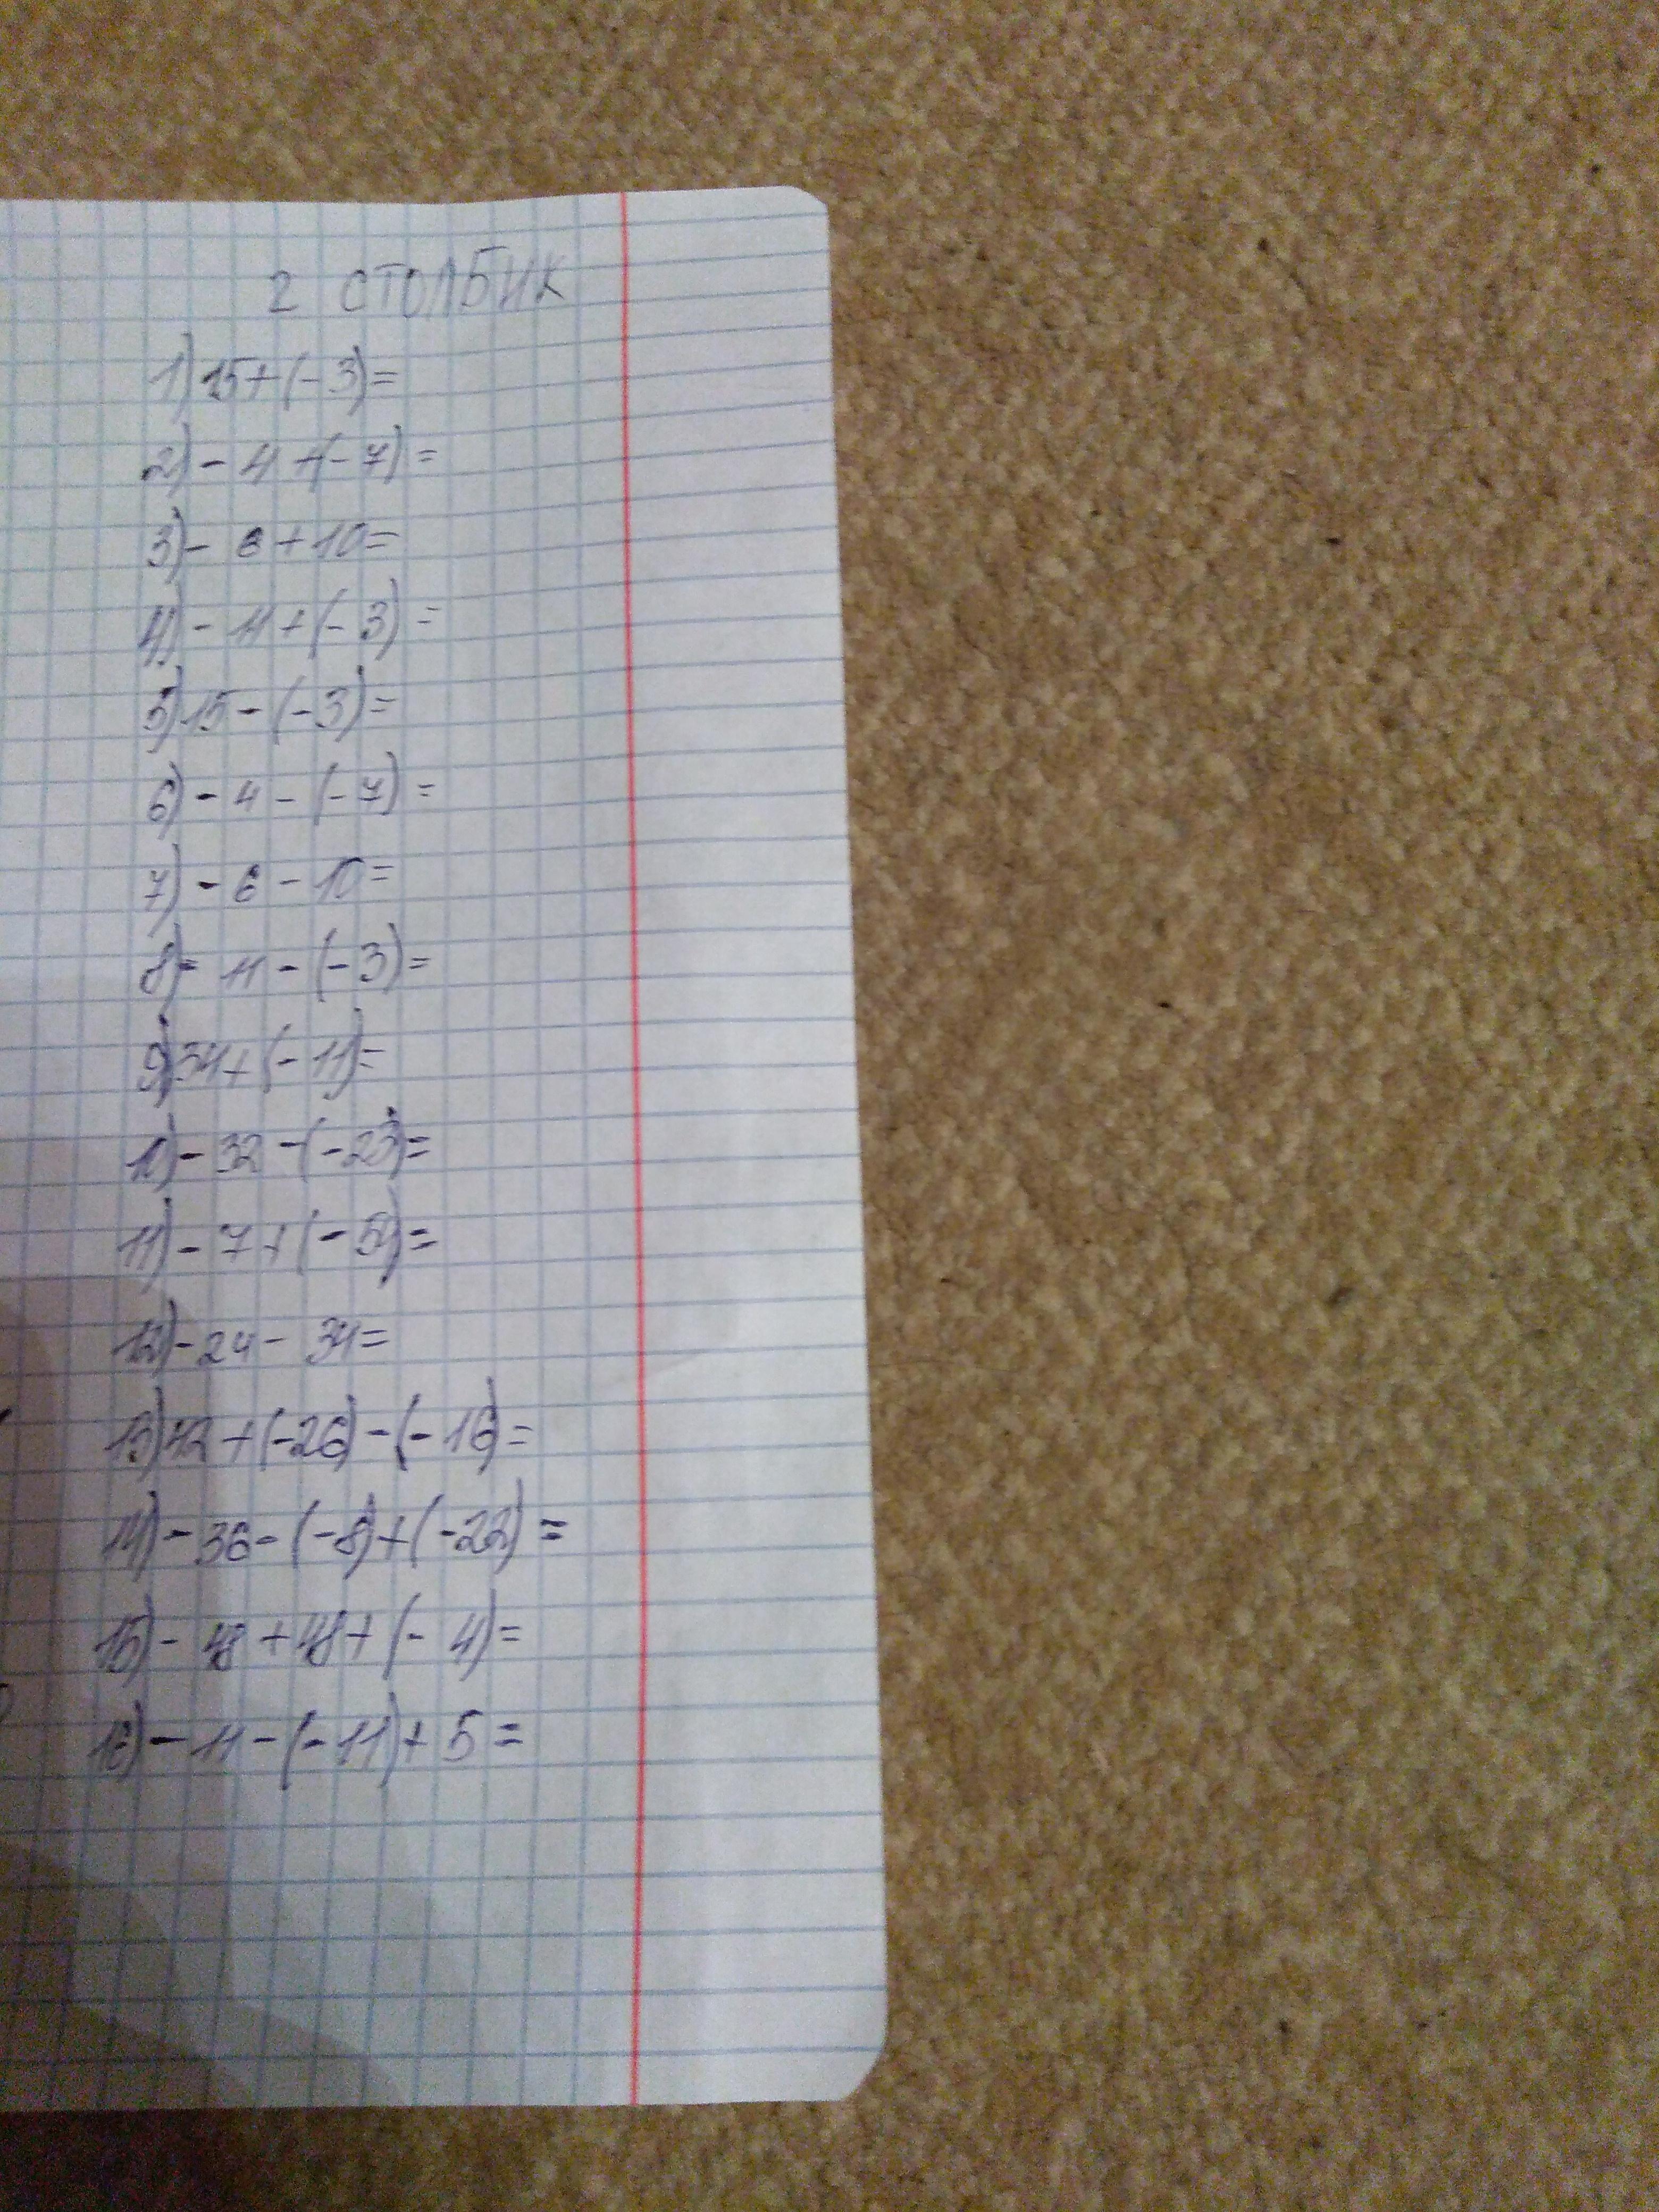 2 СТОЛБИК
1) 15+(-3)=
2) - 4 +(-7)=
3) - 6 + 10=
4) - 11 + (-3) =
5) 15 - (-3)=
6) - 4 - (-7) =
7) - 6 - 10=
8) - 11 - (-3)=
9) 34+(-11)=
10) - 32 -(-23)=
11) - 7 + (-54)=
12) - 24 - 34=
13) 42 +(-26)-(-16)=
14) - 36 - (-8)+(-22) =
15) - 48 +48+ (- 4)=
16) - 11 - (-11)+ 5 =